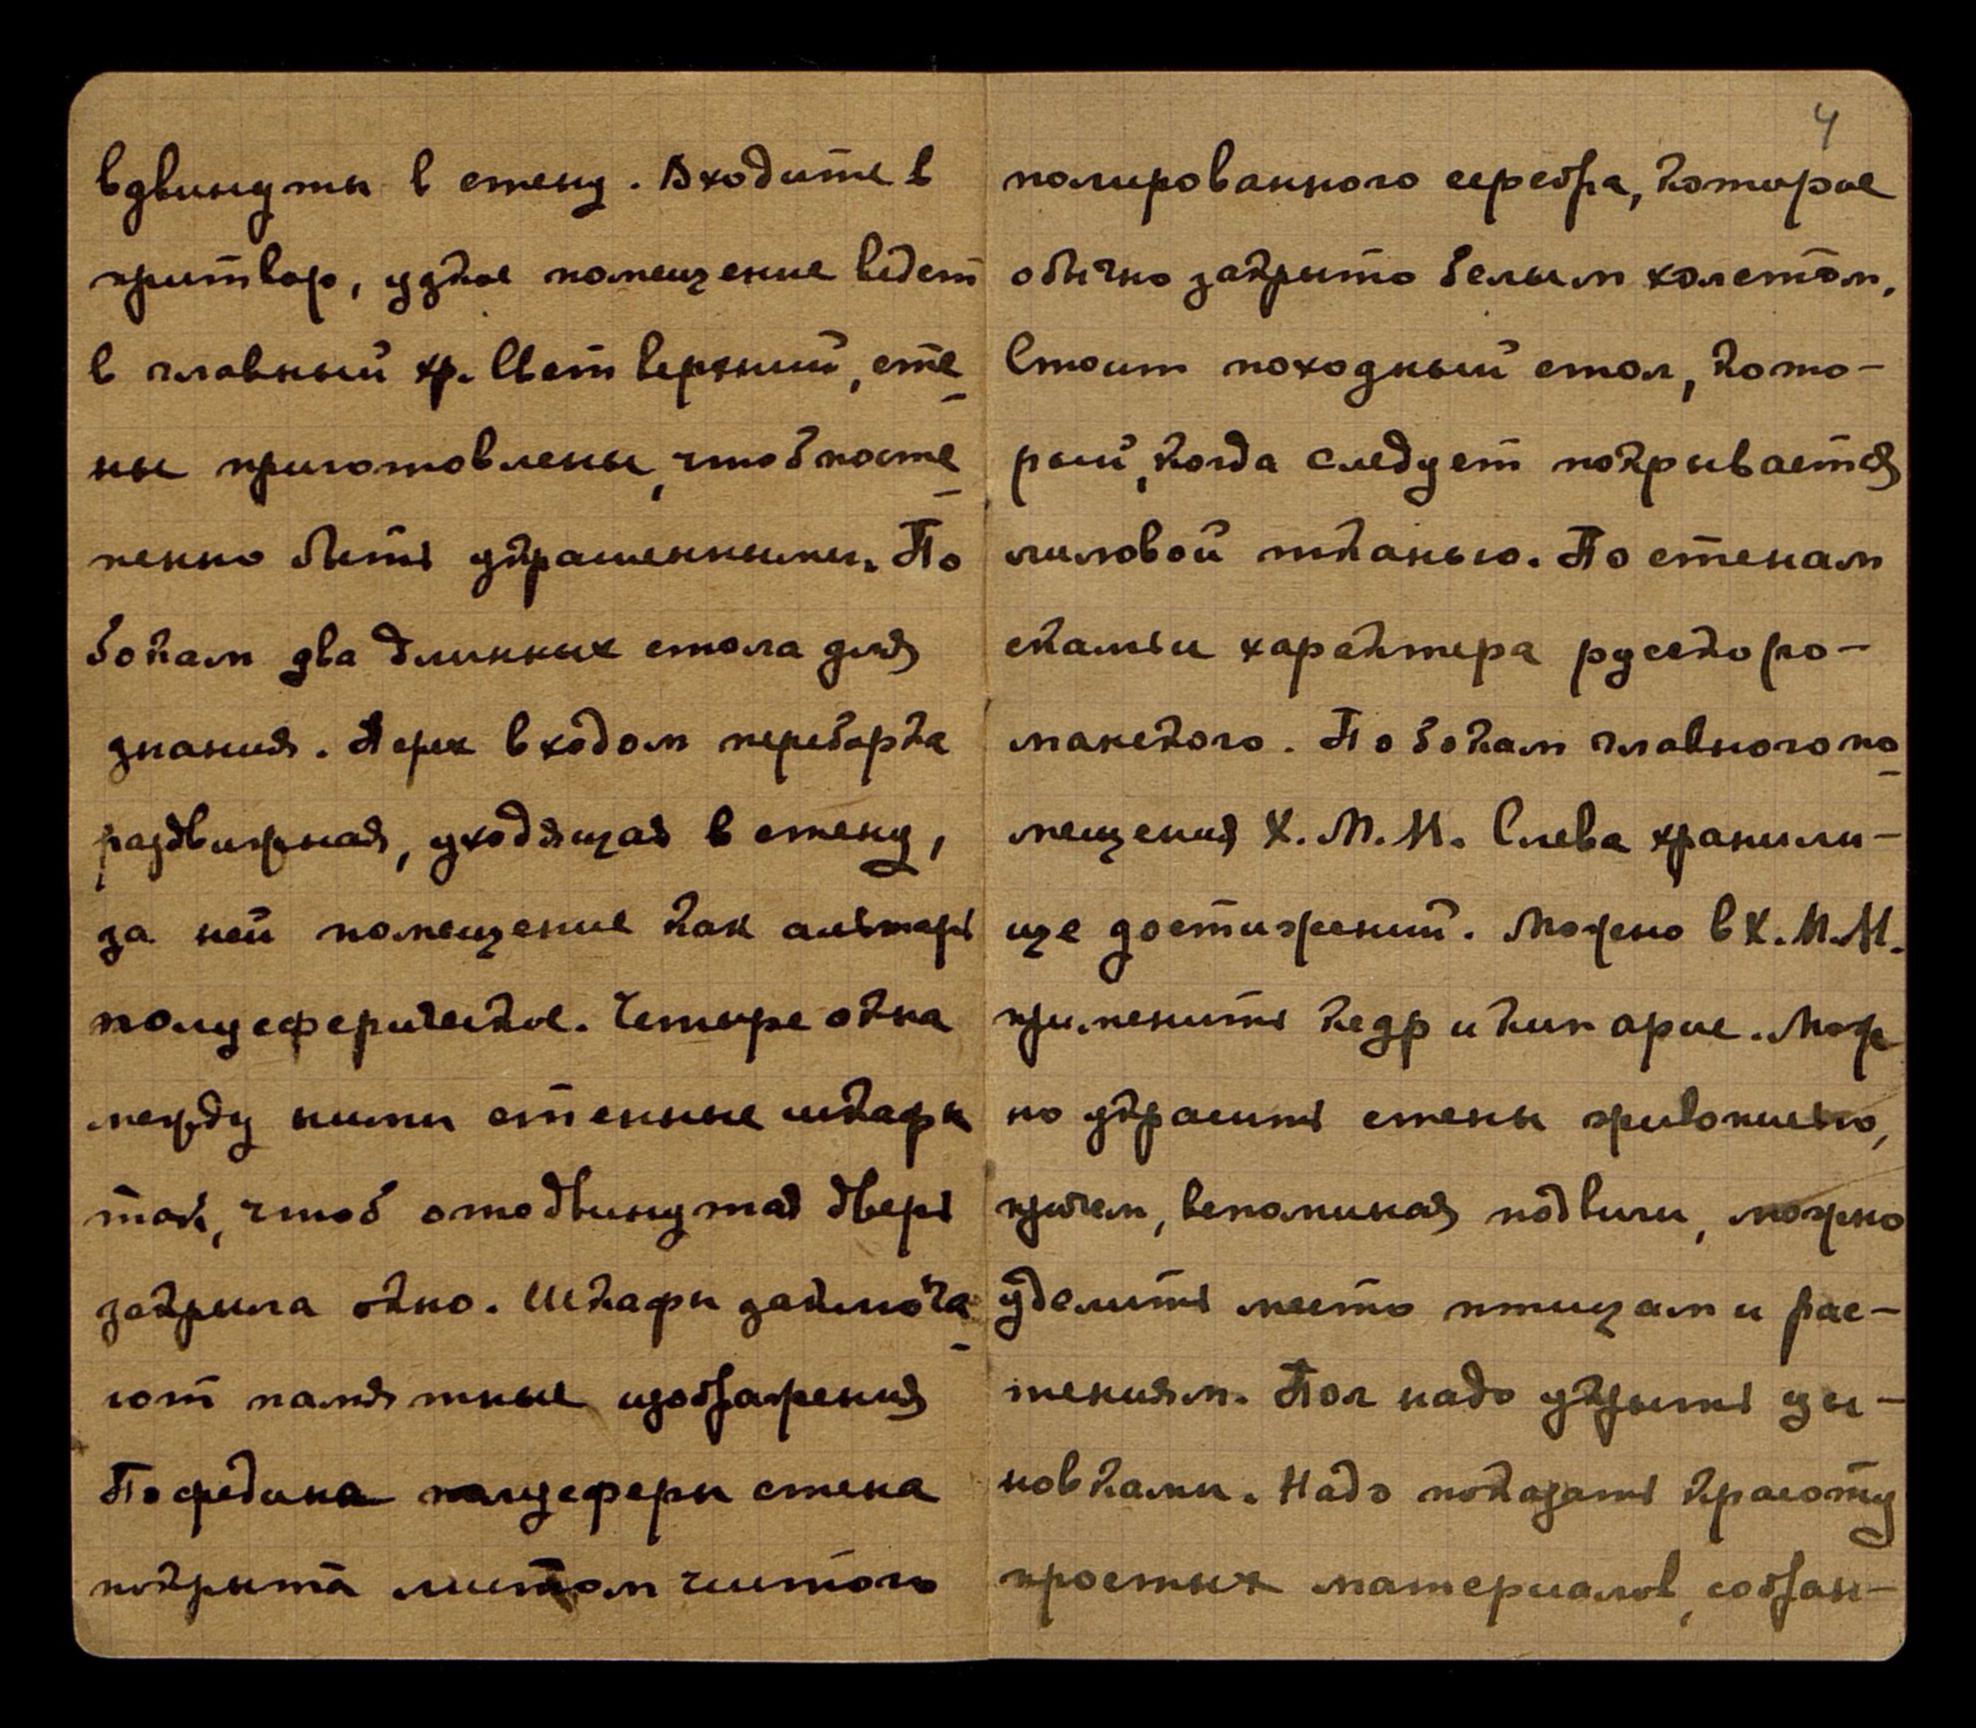 вдвинуты в стену. Входите в
притвор, узкое помещение ведет
в главный хр. Свет верхний, сте
ны приготовлены, чтоб посте
пенно быть украшенными. По
бокам два длинных стола для
знания. Перек входом переборка
раздвижная, уходящая в стену,
за ней помещение как алтарь
полусферическое. Четыре окна
между ними стенные шкафы
так, чтоб отодвинутая дверь
закрыла окно. Шкафы заключа
ют памятные изображения
Посредина полусферы стена
покрыта листом чистого
4
полированного серебра, которое
обычно закрыто белым холстом.
Стоит походный стол, кото-
рый, когда следует покрывается
лиловой тканью. По стенам
скамьи характера русско ро-
манского. По бокам главного по
мещения Х. М. М. Слева храни­ли-
ще достижений. Можно в Х. М. М.
применить кедр и кипарис. Мож
но украсить стены живописью,
причем, вспоминая подвиги, можно
уделить место птицам и рас-
тениям. Пол надо укрыть цы-
новками. Надо показать красоту
простых материалов, собран-